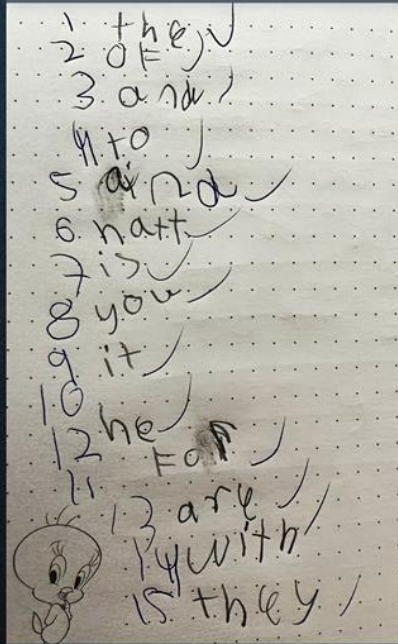 1 the
2 OF
3 and
4 to
5 aind
6 hatt
7 is
8 you
9 it
10
12 he
FOR
11
13 are
14 with
15 they